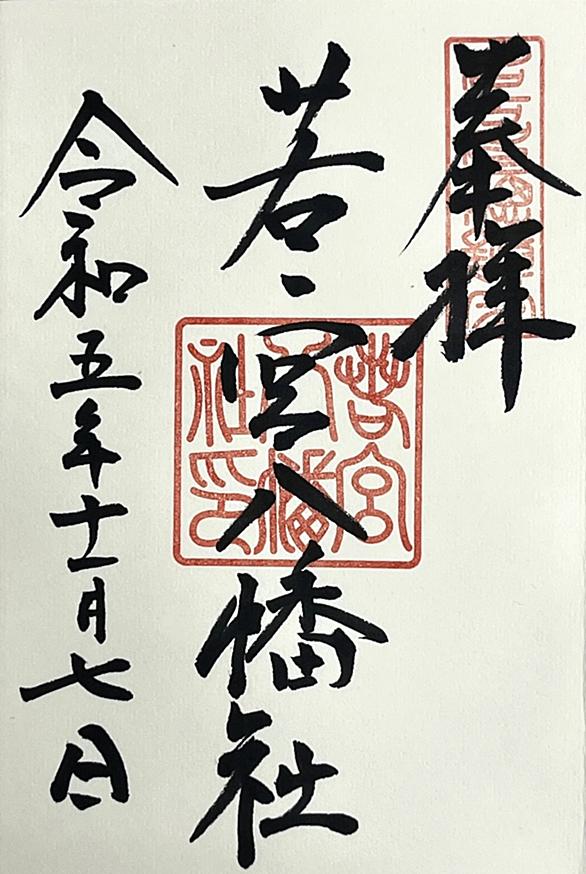 奉拝
若宮八幡社
若宮八幡社印
令和五年十一月七日